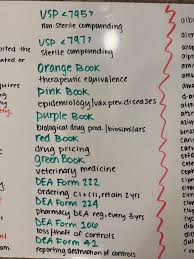 USP <795>
non-sterile compounding
USP <797>
sterile compounding
Orange Book
therapeutic equivalence
Pink Book
epidemiology/vax prev. diseases
Purple Book
biological drug prod./biosimilars
Red Book
drug pricing
Green Book
veterinary medicine
DEA Form 222
ordering CI+CII, retain 2 yrs
DEA Form 224
pharmacy DEA reg, every 3 yrs
DEA Form 106
loss/theft of controls
DEA Form 41
reporting destruction of controls